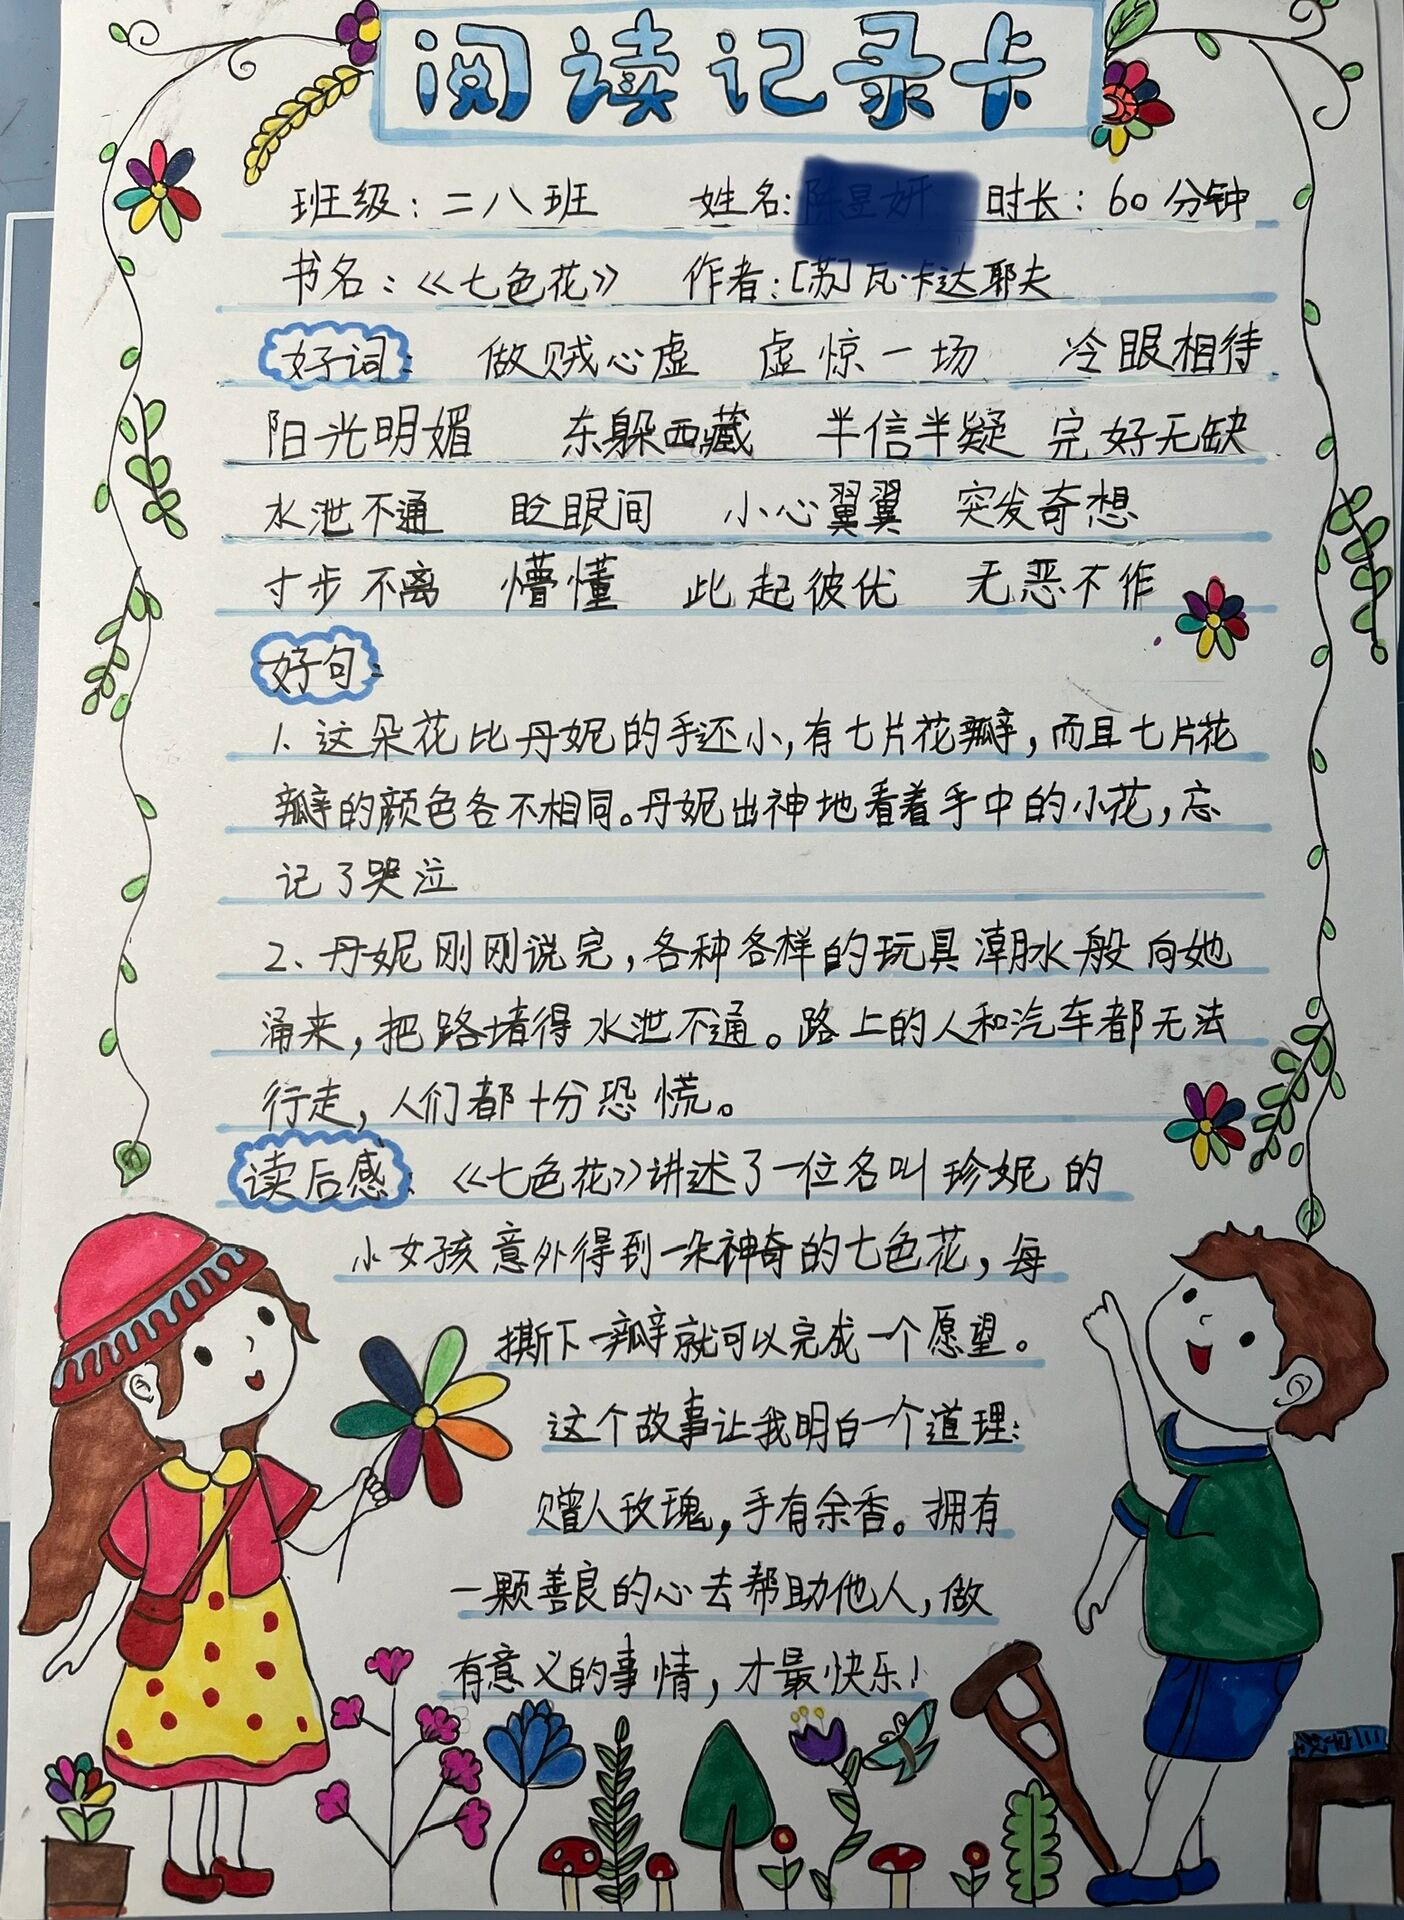 阅读记录卡
班级：二八班 姓名： 时长：60分钟
书名：《七色花》 作者：[苏]瓦·卡达耶夫
好词： 做贼心虚 虚惊一场 冷眼相待
阳光明媚 东躲西藏 半信半疑 完好无缺
水泄不通 眨眼间 小心翼翼 突发奇想
寸步不离 懵懂 此起彼优 无恶不作
好句：
1、这朵花比丹妮的手还小，有七片花瓣，而且七片花
瓣的颜色各不相同。丹妮出神地看着手中的小花，忘
记了哭泣
2、丹妮刚刚说完，各种各样的玩具潮水般向她
涌来，把路堵得水泄不通。路上的人和汽车都无法
行走，人们都十分恐慌。
读后感：《七色花》讲述了一位名叫珍妮的
小女孩意外得到一朵神奇的七色花，每
撕下一瓣就可以完成一个愿望。
这个故事让我明白一个道理：
赠人玫瑰，手有余香。拥有
一颗善良的心去帮助他人，做
有意义的事情，才最快乐！